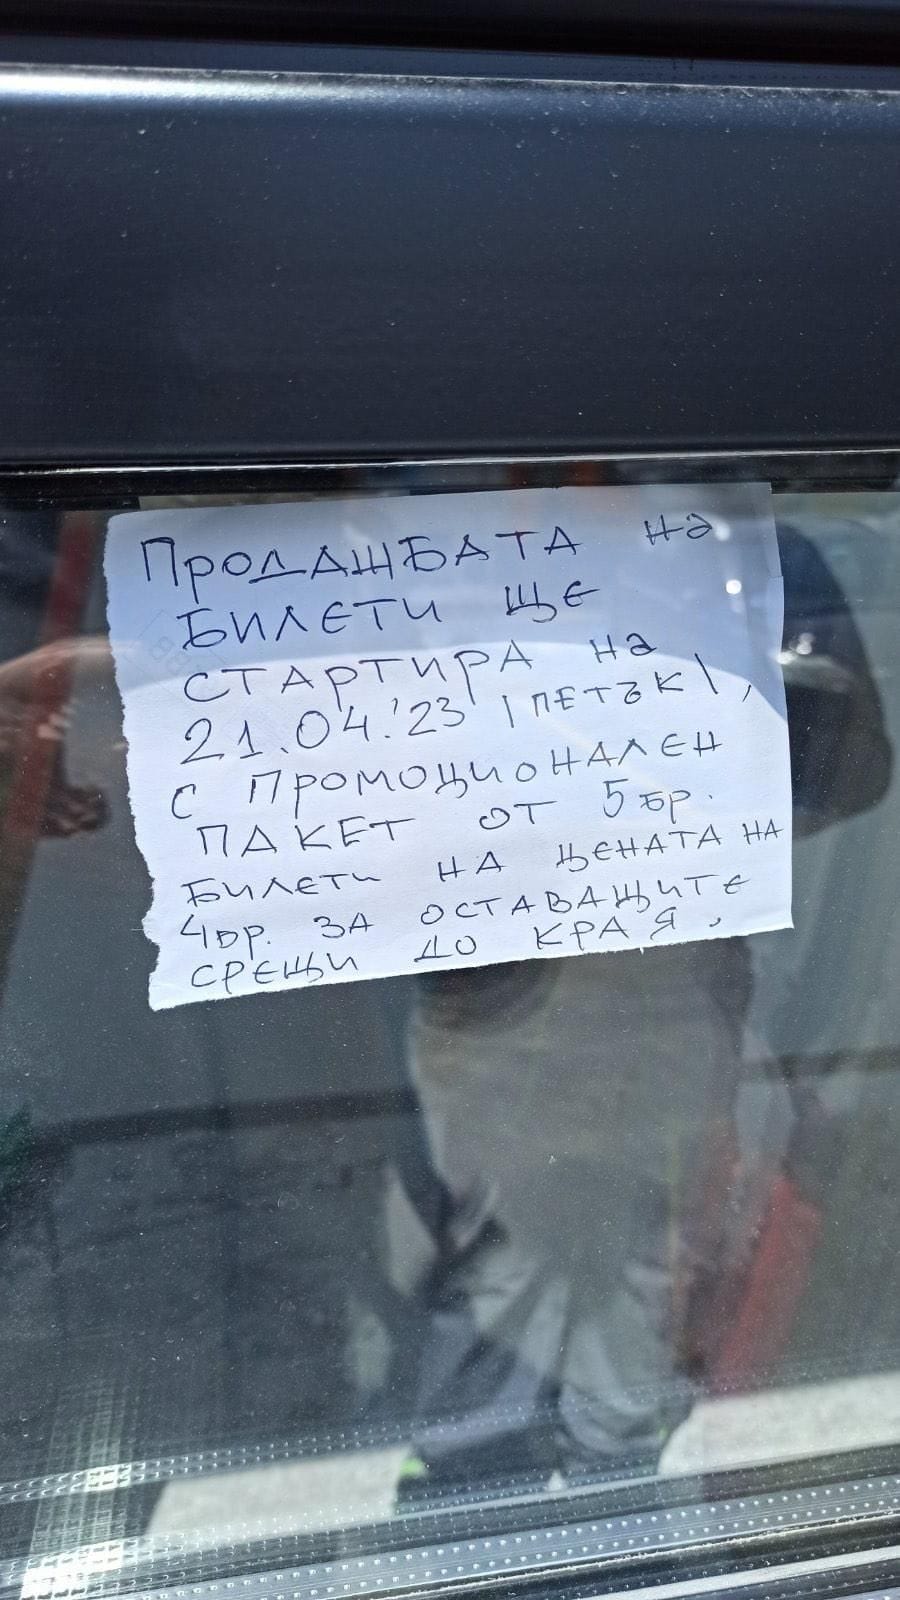 ПРОДАЖБАТА НА
БИЛЕТИ ЩЕ
СТАРТИРА НА
21.04.'23 |ПЕТЪК|,
С ПРОМОЦИОНАЛЕН
ПАКЕТ ОТ 5 БР.
БИЛЕТИ НА ЦЕНАТА НА
4БР. ЗА ОСТАВАЩИТЕ
СРЕЩИ ДО КРАЯ,